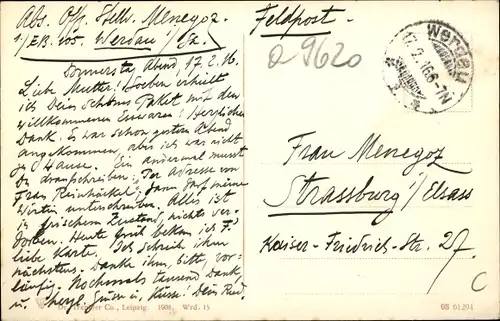 Abs. Off. Stellv. Menegoz.
1./E/B. 105. Werdau i/Sa.
Donnerstag Abend, 17.2.16.
Liebe Mutter! Soeben erhielt
ich Dein schönes Paket mit den
willkommenen Esswaren! Herzlichen
Dank. Es war schon gestern Abend
angekommen, aber ich war nicht
zu Hause. Ein andermal musst
Du draufschreiben: "Per Adresse von
Frau Reinhäckel", dann darf meine
Wirtin unterschreiben. Alles ist
in frischem Zustand, nichts ver-
dorben. Heute früh bekam ich F.'s
liebe Karte. Ich schreib ihm
nächstens. Danke ihm, bitte, vor-
läufig. Nochmals tausend Dank,
u. herzl. Grüsse u. Küsse! Dein
Feldpost.-
Q 9620
Werdau
17.2.16.6-7N
Frau Menegoz
Strassburg i/Elsass
Kaiser-Friedrich-Str. 27.
C
Co., Leipzig. 1908. Wrd. 15
08 61294